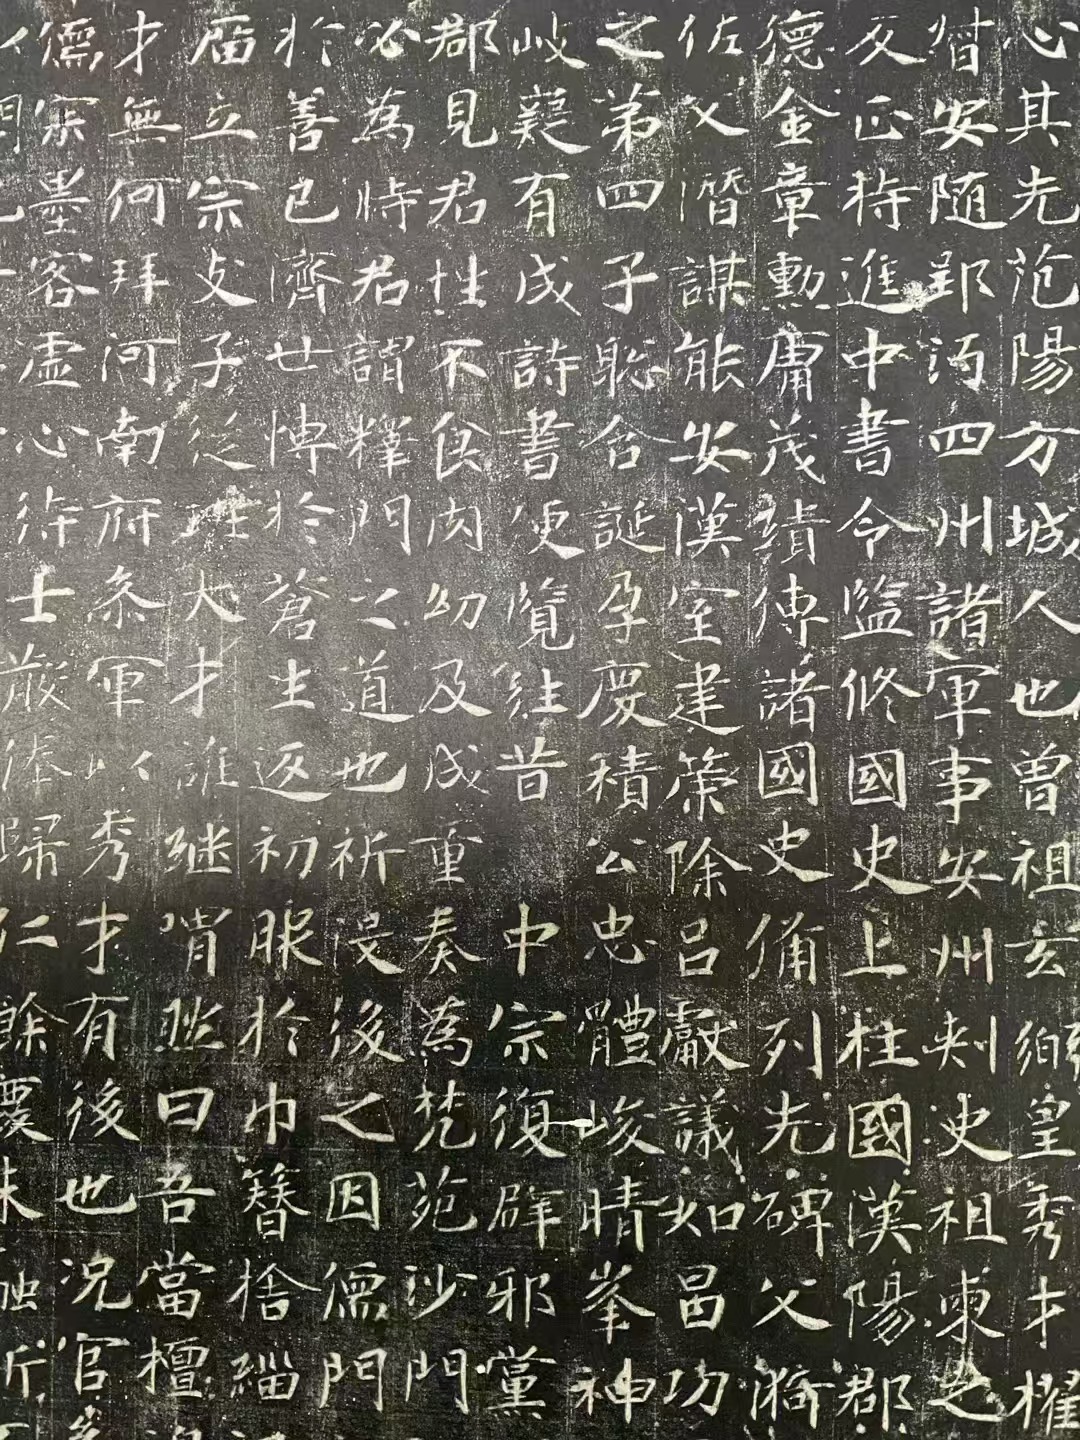 心其先范陽方城人也曾祖玄皇秀才擢
督安随郢沔四州諸軍事安州刺史祖柬之
反正特進中書令監修國史上柱國漢陽郡
德金章勳庸茂績傳諸國史備列先碑父漪
佐父潛謀能安漢室建策除呂獻議如昌功
之第四子聡合誕孕慶積公忠體峻晴峯神
岐嶷有成詩書便覽往昔中宗復辟邪黨
郡見君性不食肉幼及成重奏為梵苑沙門
必為時君謂釋門之道也祈及後之因儒門
於善已濟世博於蒼生返初服於巾簪捨緇
庿立宗支子從大才誰継喟然曰吾當檀
才無何拜河南府叅軍以秀才有後也况官
儒宗墨客虛心待士嚴奉歸仁餘慶